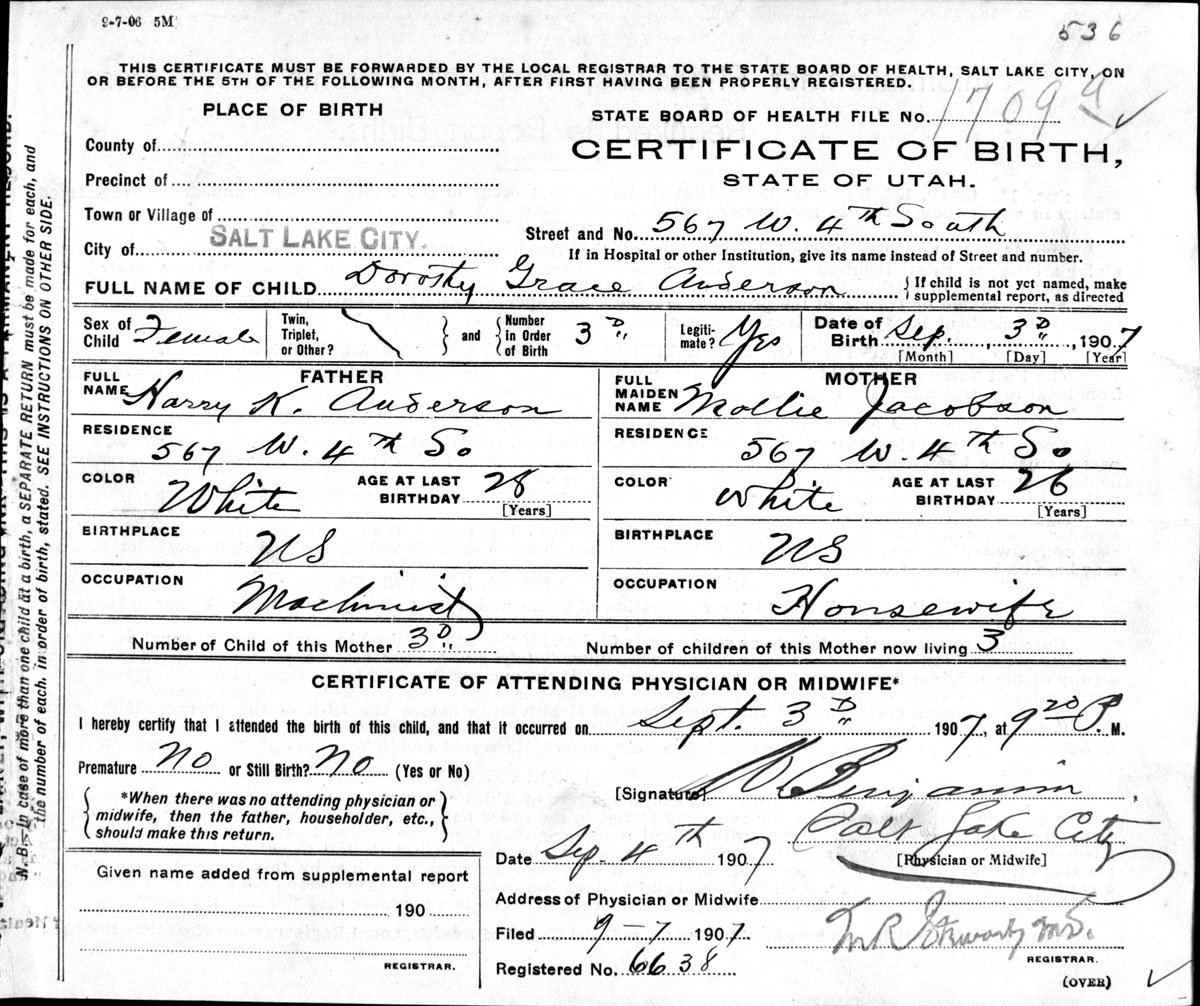 9-7-06 5M
536
THIS CERTIFICATE MUST BE FORWARDED BY THE LOCAL REGISTRAR TO THE STATE BOARD OF HEALTH, SALT LAKE CITY, ON
OR BEFORE THE 5TH OF THE FOLLOWING MONTH, AFTER FIRST HAVING BEEN PROPERLY REGISTERED.
PLACE OF BIRTH
STATE BOARD OF HEALTH FILE No. 1709
County of
CERTIFICATE OF BIRTH,
Precinct of
STATE OF UTAH.
Town or Village of
Street and No. 567 W. 4th South
City of SALT LAKE CITY.
If in Hospital or other Institution, give its name instead of Street and number.
FULL NAME OF CHILD Dorothy Grace Anderson
{ If child is not yet named, make
supplemental report, as directed
Sex of Child Female
Twin, Triplet, or Other?
} and { Number in Order of Birth 3D
Legiti- mate? Yes
Date of Birth Sep. 3D, 1907
[Month] [Day] [Year]
FATHER
FULL NAME Harry K. Anderson
MOTHER
FULL MAIDEN NAME Mollie Jacobson
RESIDENCE
567 W. 4th So
RESIDENCE
567 W. 4th So
COLOR White
AGE AT LAST BIRTHDAY 28
[Years]
COLOR White
AGE AT LAST BIRTHDAY 26
[Years]
BIRTHPLACE US
BIRTHPLACE US
OCCUPATION Machinist
OCCUPATION Housewife
Number of Child of this Mother 3D
Number of children of this Mother now living 3
CERTIFICATE OF ATTENDING PHYSICIAN OR MIDWIFE*
I hereby certify that I attended the birth of this child, and that it occurred on Sept. 3D 1907, at 9 20 P. M.
Premature No or Still Birth? No (Yes or No)
[Signature] Benjamin
{ *When there was no attending physician or
midwife, then the father, householder, etc.,
should make this return. }
Salt Lake City
Date Sep. 4th 1907
[Physician or Midwife]
Given name added from supplemental report
190
REGISTRAR.
Address of Physician or Midwife
Filed 9 7 1907
M.D.
REGISTRAR.
Registered No. 6638
(OVER)
N.B.-In case of more than one child at a birth, a SEPARATE RETURN must be made for each, and
the number of each, in order of birth, stated. SEE INSTRUCTIONS ON OTHER SIDE.